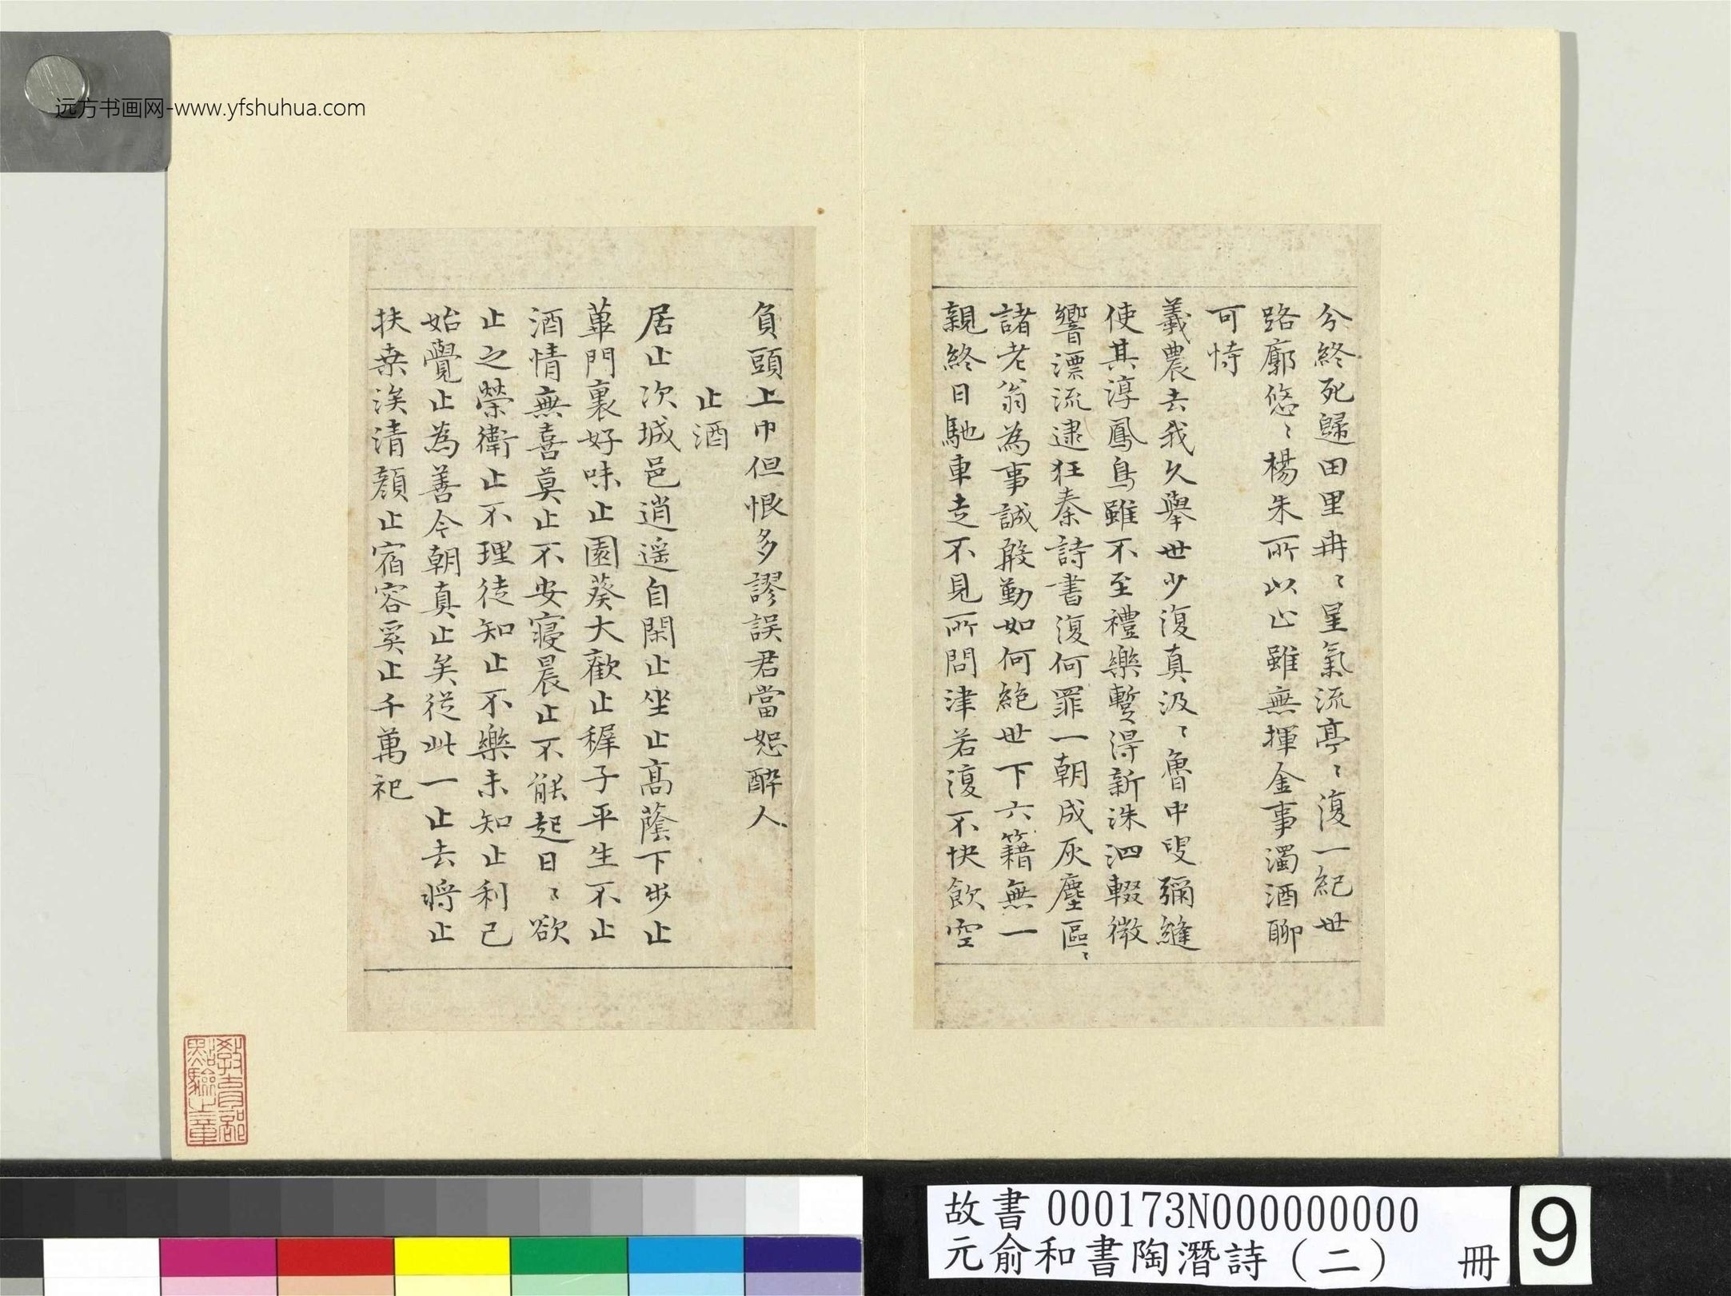 远方书画网-www.yfshuhua.com
分終死歸田里冉〻星氣流亭〻復一紀世
路廓悠〻楊朱所以止雖無揮金事濁酒聊
可恃
羲農去我久舉世少復真汲〻魯中叟彌縫
使其淳鳳鳥雖不至禮樂暫得新洙泗輟微
響漂流逮狂秦詩書復何罪一朝成灰塵區〻
諸老翁為事誠殷勤如何絕世下六籍無一
親終日馳車走不見所問津若復不快飲空
負頭上巾但恨多謬誤君當恕醉人
止酒
居止次城邑逍遥自閑止坐止高蔭下步止
蓽門裏好味止園葵大歡止稺子平生不止
酒情無喜莫止不安寢晨止不能起日〻欲
止之榮衛止不理徒知止不樂未知止利己
始覺止為善今朝真止矣從此一止去將止
扶桒涘清顏止宿容奚止千萬祀
教育部
點驗之章
故書 000173N000000000
元俞和書陶潛詩(二) 冊
9